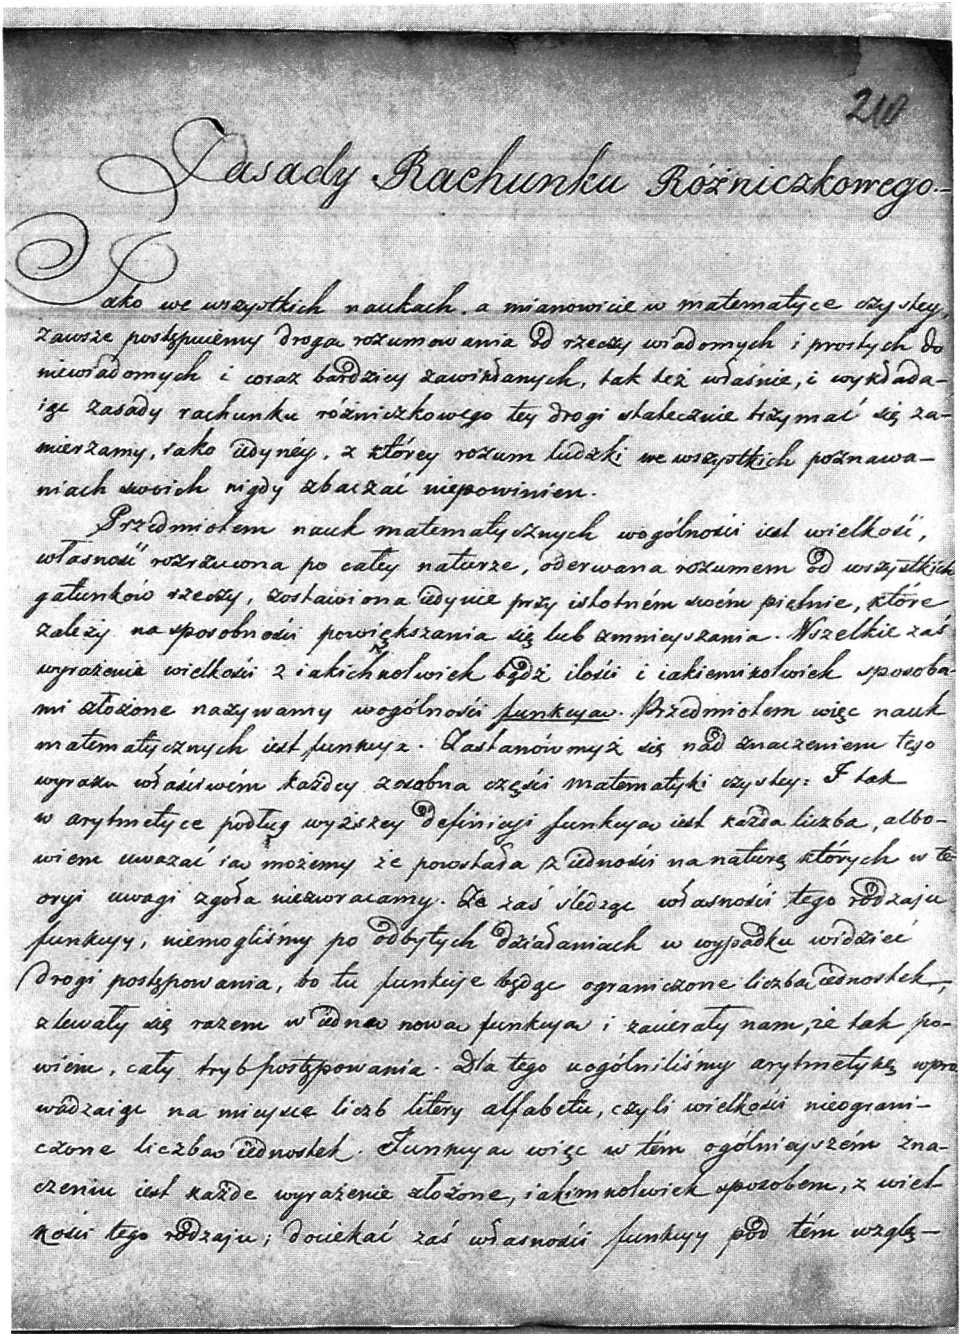 210
Zasady Rachunku Różniczkowego.–
Jako we wszystkich naukach, a mianowicie w matematyce czystey,
zawsze postępuiemy drogą rozumowania od rzeczy wiadomych i prostych do
niewiadomych i coraz bardziey zawikłanych, tak też właśnie, i wykłada-
iąc zasady rachunku różniczkowego tey drogi statecznie trzymać się za-
mierzamy, iako iedynéy, z którey rozum ludzki we wszystkich poznawa-
niach swoich nigdy zbaczać niepowinien.
Przedmiotem nauk matematycznych wogólności iest wielkość,
własność rozrzucona po całey naturze, oderwana rozumem od wszystkich
gatunków rzeczy, zostawiona iedynie przy istotném swoém piętnie, które
zależy na sposobności powiększania się lub zmnieyszania. Wszelkie zaś
wyrażenia wielkości z iakichkolwiek bądź ilości i iakiemikolwiek sposoba-
mi złożone nazywamy wogólności funkcyą. Przedmiotem więc nauk
matematycznych iest funkcya. Zastanówmyż się nad znaczeniem tego
wyrazu właściwém każdey zosobna części matematyki czystey: I tak
w arytmetyce podług wyższey definicyi funkcyą iest każda liczba, albo-
wiem uważać ią możemy że powstała z iedności na naturę których w te-
oryi uwagi zgoła niezwracamy. Że zaś śledząc własności tego rodzaju
funkcyy, niemogliśmy po odbytych działaniach w wypadku widzieć
drogi postępowania, bo tu funkcye będąc ograniczone liczbą iednostek,
zlewały się razem w iedną nową funkcyą i zacierały nam, że tak po-
wiém, cały tryb postępowania. Dla tego uogólniliśmy arytmetykę wpro
wadzaiąc na mieysce liczb litery alfabetu, czyli wielkości nieograni-
czone liczbą iednostek. Funkcyą więc w tém ogólnieyszém zna-
czeniu iest każde wyrażenie złożone, iakimkolwiek sposobem, z wiel
kości tego rodzaju; dociekać zaś własności funkcyy pod tém wzglę-